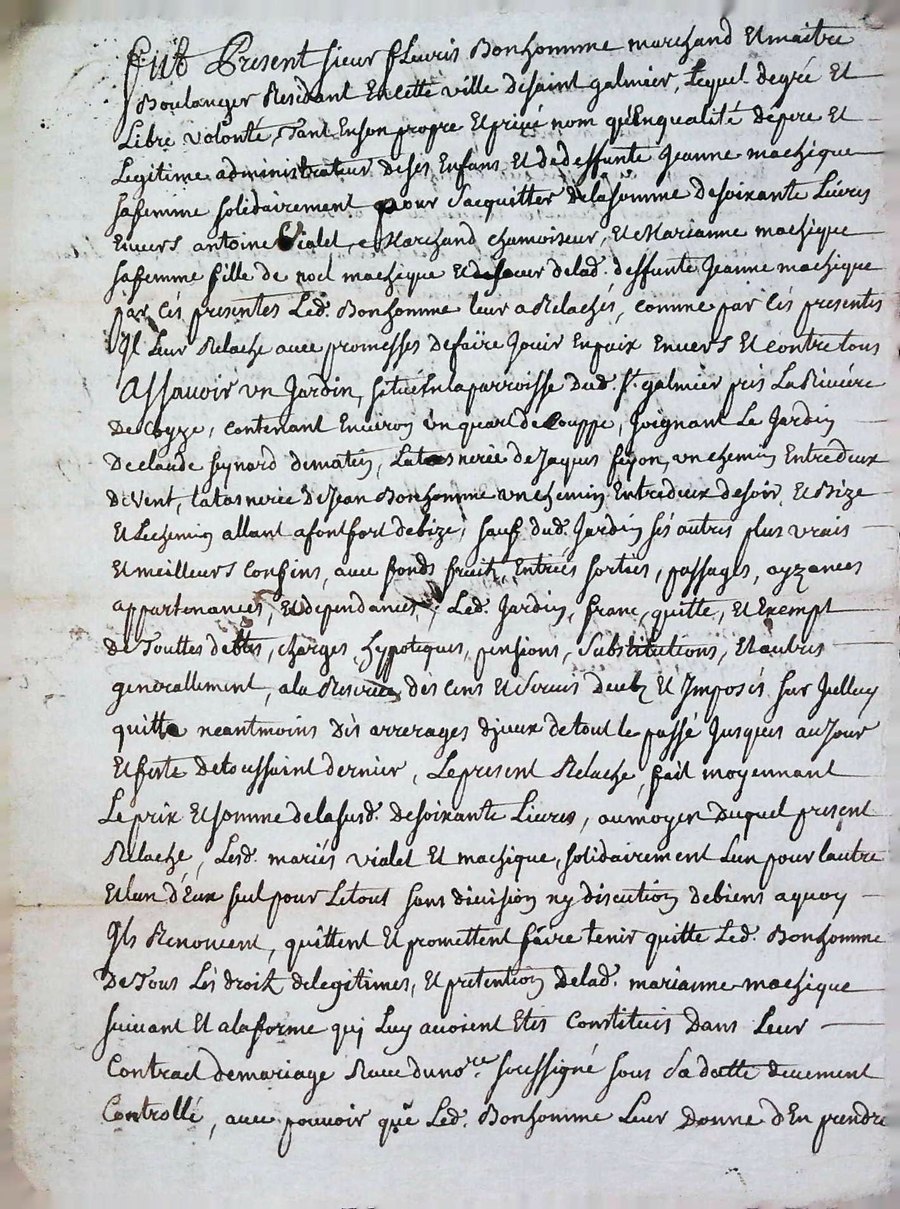 Fut Present sieur fleuris Bonhomme marchand Et maitre
Boulanger Residant En cette ville de saint galmier, Lequel degré Et
Libre volonté, Tant En son propre Et privé nom qu'En qualité de pere Et
Legitime administrateur de ses Enfans Et de deffunte Jeanne machique
sa femme solidairement pour s'acquitter de la somme de soixante Livres
Envers antoine Vialet, Marchand chamoiseur, Et Marianne machique
sa femme fille de noel machique Et de soeur de lad. deffunte Jeanne machique
par cés presentes Led. Bonhomme leur a Relachés, comme par cés presentes
Il Leur Relache avec promesses de faire Jouir En paix Envers Et contre tous
Assavoir un Jardin, situé En la parroisse dud. st. galmier pris La Riviere
De Coyze, contenant Environ un quart de Couppe, Joignant Le Jardin
De claude synard de matin, La de Jaques feyon, un chemin Entredeux
De Vent, la de Jean Bonhomme un chemin Entredeux de soir, Et Bize
Et Le chemin allant a fontfort de bize, sauf dud. Jardin sés autres plus vrais
Et meilleurs Confins, avec fonds fruitz, Entrées sorties, passages, ayzances
appartenances, Et dependances, Led. Jardin, franc, quitte, Et Exempt
De Touttes debtes, charges, hypoteques, pensions, Substitutions, Et autres
generallement, a la Reserve dés cens Et servis deubz Et Imposés sur Jcelluy
quitte neantmoins dés arrerages d'jceux de tout le passé Jusques au Jour
Et feste de toussaint dernier, Le present Relache, fait moyennant
Le prix Et somme de la susd. de soixante Livres, au moyen duquel present
Relache, Lesd. mariés vialet Et machique, solidairement L'un pour lautre
Et lun d'Eux seul pour Le tout sans division ny discution de biens a quoy
Ils Renoncent, quittent Et promettent faire tenir quitte Led. Bonhomme
De Tous Lés droitz de legitimes, Et pretention De lad. marianne machique
suivant Et a la forme qui Luy avoient Etés Constitués Dans Leur
Contract de mariage Receu du nore. soussigné sous sa datte deuement
Controllé, avec pouvoir que Led. Bonhomme Leur Donne d'En prendre